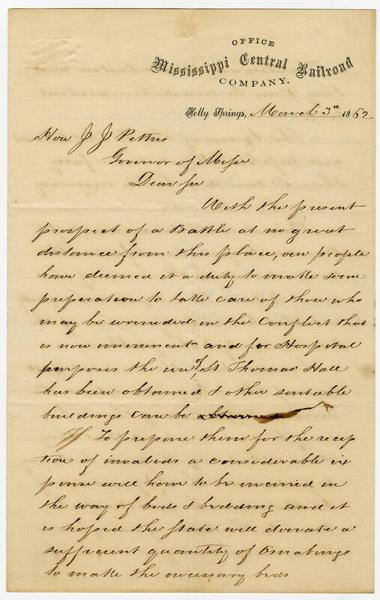 OFFICE
Mississippi Central Railroad
COMPANY.
Holly Springs, March 3rd 1862
Hon J J Pettus
Governor of Misse
Dear Sir
With the present
prospect of a Battle at no great
distance from this place, our people
have deemed it a duty to make some
preparation to take care of those who
may be wounded in the Conflict that
is now imminent and for Hospital
purposes the use of St Thomas Hall
has been obtained & other suitable
buildings can be
To prepare them for the recep
tion of invalids a considerable ex
pense will have to be incurred in
the way of beds & bedding and it
is hoped the State will donate a
sufficient quantity of Osnabings
to make the necessary beds